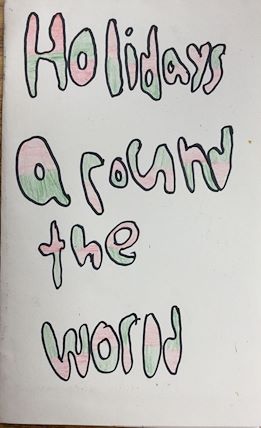 Holidays
around
the
world